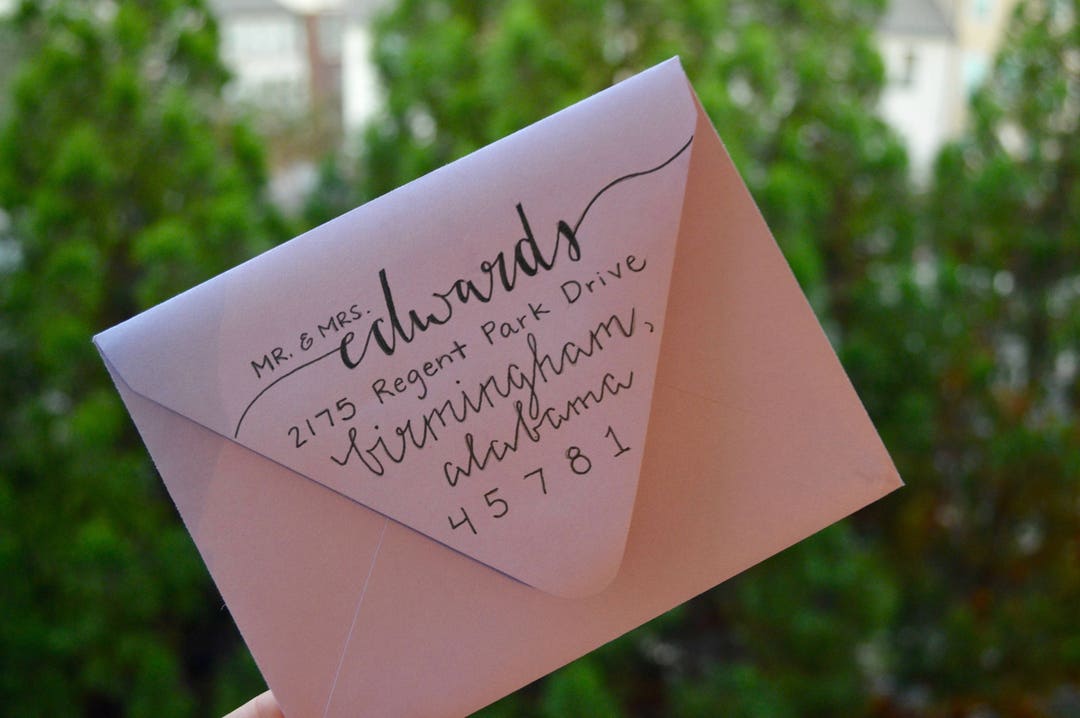 MR. & MRS. edwards
2175 Regent Park Drive
birmingham,
alabama
45781